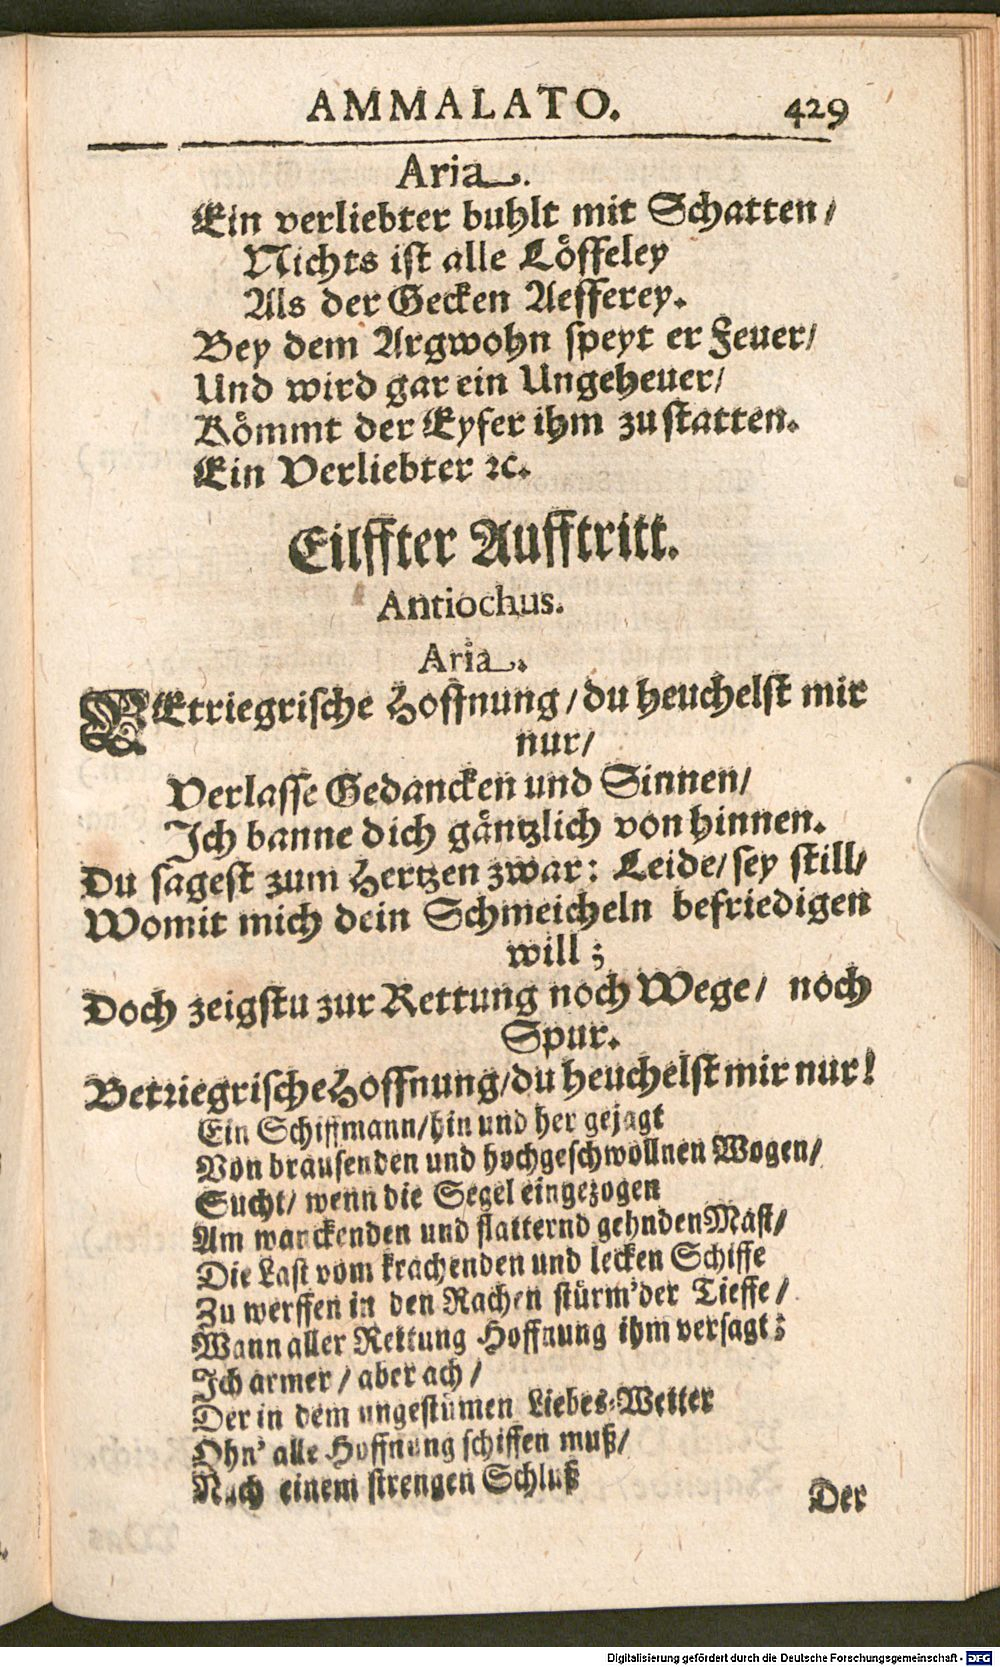 AMMALATO. 429
Aria.
Ein verliebter buhlt mit Schatten/
Nichts ist alle Löffeley
Als der Gecken Aefferey.
Bey dem Argwohn speyt er Feuer/
Und wird gar ein Ungeheuer/
Kömmt der Eyfer ihm zu statten.
Ein Verliebter ꝛc.
Eilffter Aufftritt.
Antiochus.
Aria.
BEtriegrische Hoffnung/ du heuchelst mir
nur/
Verlasse Gedancken und Sinnen/
Ich banne dich gäntzlich von hinnen.
Du sagest zum Hertzen zwar: Leide/ sey still/
Womit mich dein Schmeicheln befriedigen
will;
Doch zeigstu zur Rettung noch Wege/ noch
Spur.
Betriegrische Hoffnung/ du heuchelst mir nur!
Ein Schiffmann/ hin und her gejagt
Von brausenden und hochgeschwollnen Wogen/
Sucht/ wenn die Segel eingezogen
Am wanckenden und flatternd gehnden Mast/
Die Last vom krachenden und lecken Schiffe
Zu werffen in den Rachen stürm'der Tieffe/
Wann aller Rettung Hoffnung ihm versagt;
Ich armer/ aber ach/
Der in dem ungestümen Liebes-Wetter
Ohn' alle Hoffnung schiffen muß/
Nach einem strengen Schluß
Der
Digitalisierung gefördert durch die Deutsche Forschungsgemeinschaft - DFG